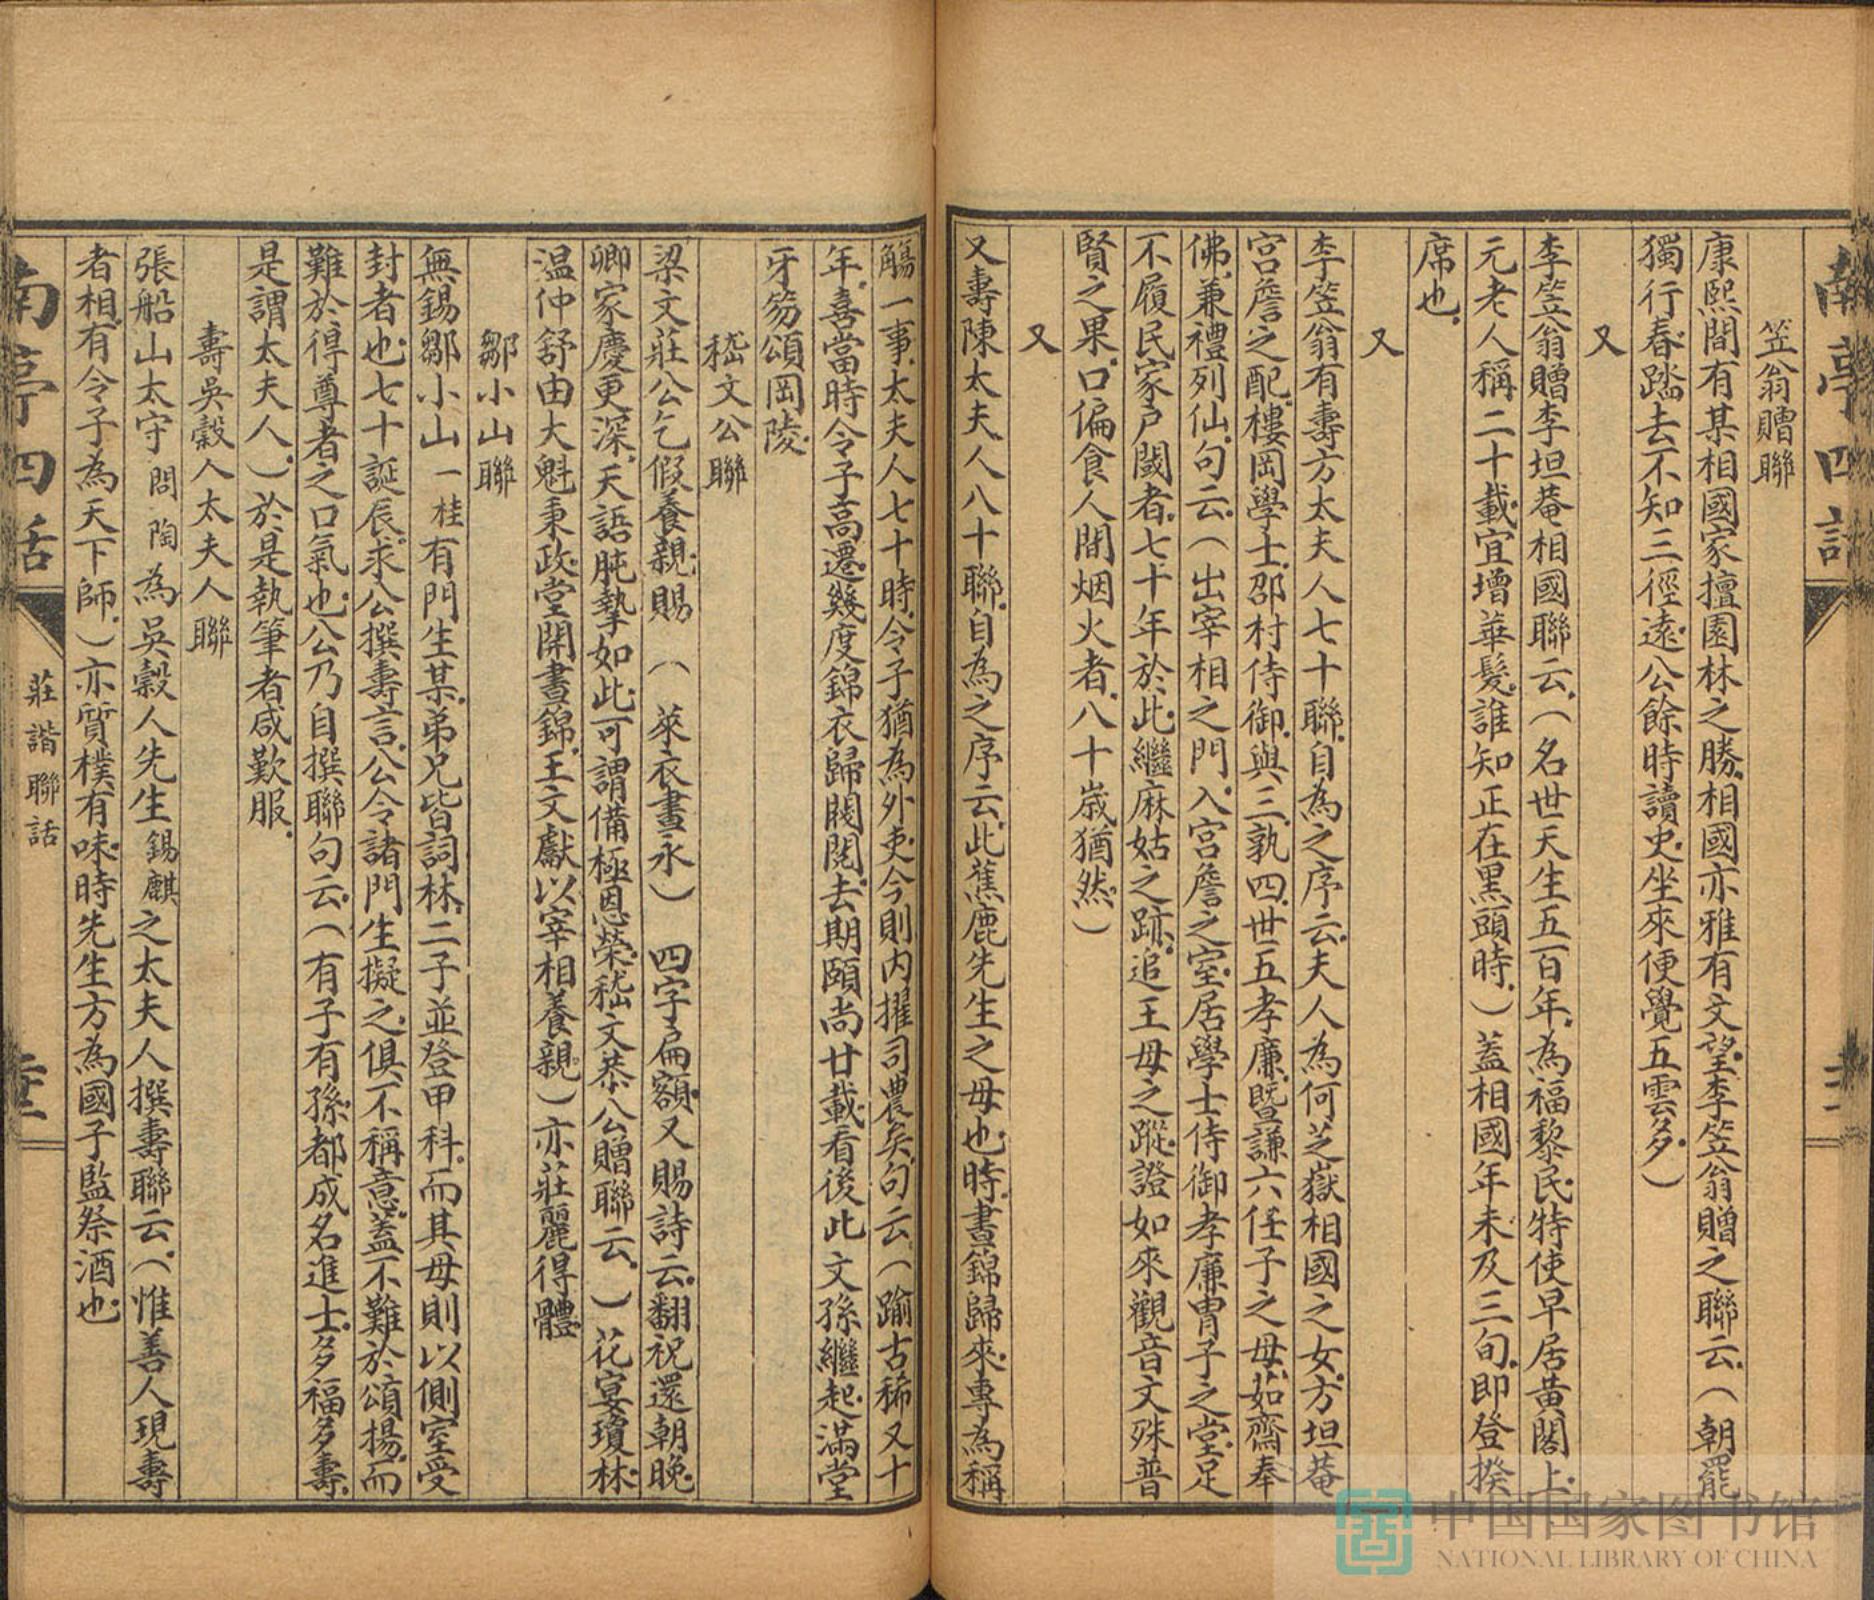 南亭四話
笠翁贈聯
康熙間有某相國家擅園林之勝.相國亦雅有文望.李笠翁贈之聯云.（朝罷
獨行春.踏去不知三徑遠.公餘時讀史.坐來便覺五雲多.）
又
李笠翁贈李坦菴相國聯云.（名世天生五百年.為福黎民.特使早居黃閣上.
元老人稱二十載.宜增華髮.誰知正在黑頭時.）蓋相國年未及三旬.即登揆
席也.
又
李笠翁有壽方太夫人七十聯.自為之序云.夫人為何芝嶽相國之女.方坦菴
宮詹之配.樓岡學士.邵村侍御.與三.孰四.世五孝廉.暨謙六任子之母.茹齋奉
佛.兼禮列仙.句云.（出宰相之門.入宮詹之室.居學士侍御孝廉冑子之堂.足
不履民家戶閾者.七十年於此.繼麻姑之跡.追王母之蹤.證如來觀音文殊普
賢之果.口偏食人間烟火者.八十歲猶然.）
又
又壽陳太夫人八十聯.自為之序云.此蕉鹿先生之母也.時晝錦歸來.專為稱
觴一事.太夫人七十時.令子猶為外吏.今則內擢司農矣.句云.（踰古稀又十
年.喜當時令子高遷.幾度錦衣歸閥閱.去期頤尚廿載.看後此文孫繼起.滿堂
牙笏頌岡陵.
嵇文公聯
梁文莊公乞假養親.賜（萊衣晝永）四字扁額.又賜詩云.翻祝還朝晚.
卿家慶更深.天語肫摯如此.可謂備極恩榮.嵇文恭公贈聯云.）花宴瓊林.
温仲舒由大魁秉政.堂開晝錦.王文獻以宰相養親）亦莊麗得體.
鄒小山聯
無錫鄒小山一桂有門生某.弟兄皆詞林.二子並登甲科.而其母則以側室受
封者也.七十誕辰.求公撰壽言.公令諸門生擬之.俱不稱意.蓋不難於頌揚.而
難於得尊者之口氣也.公乃自撰聯句云.（有子有孫.都成名進士.多福多壽.
是謂太夫人.）於是執筆者咸歎服.
壽吳穀人太夫人聯
張船山太守問陶為吳穀人先生錫麒之太夫人撰壽聯云.（惟善人現壽
者相.有令子為天下師.）亦質樸有味.時先生方為國子監祭酒也.
南亭四話
莊諧聯話